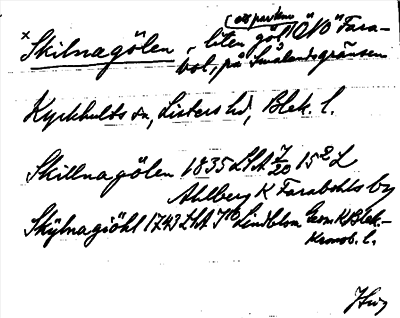 (os parken
× Skilnagölen, liten göl ÖNÖ Fara-
bol, på Smålandsgränsen
Kyrkhults sn, Listers hd, Blek. l.
Skillnagölen 1835 LSA 7/20 15² L
Ahlberg K Farabohls by
Skÿlnagiöhl 1743 LSA Lindblom Geom K Blek.-
Kronob. l.